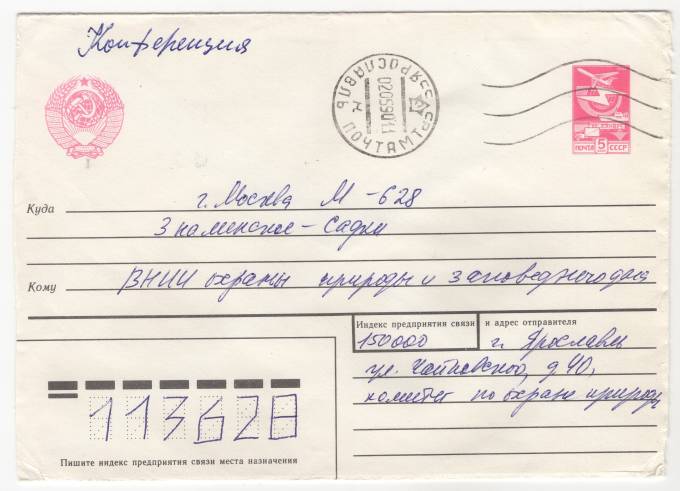 Конференция
ЯРОСЛАВЛЬ ПОЧТАМТ
020590
ПОЧТА 5 К СССР
Куда г. Москва М-628
Знаменское-Садки
Кому ВНИИ охраны природы и заповедного дела
Индекс предприятия связи и адрес отправителя
150000 г. Ярославль
ул. д 40,
комитет по охране природы
113628
Пишите индекс предприятия связи места назначения